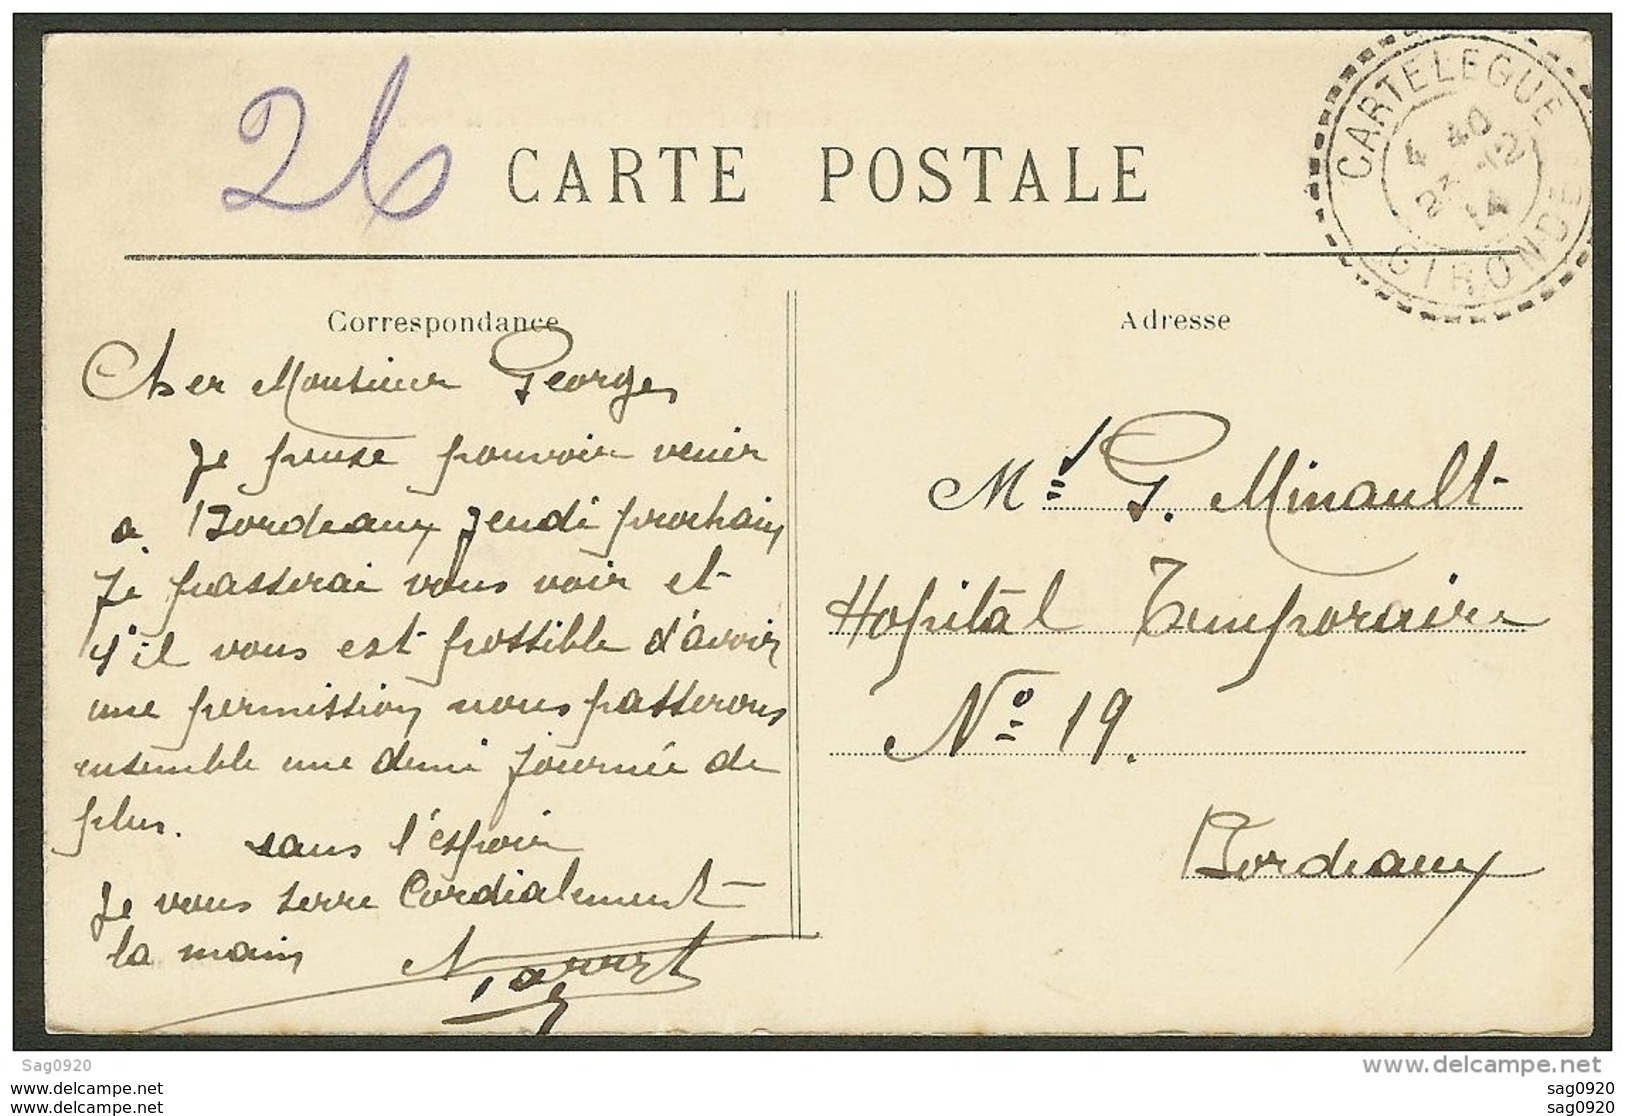 26
CARTE POSTALE
CARTELEGUE
4 40
23 12
14
GIRONDE
Correspondance
Cher Monsieur Georges
Je pense pouvoir venir
a Bordeaux Jeudi prochain
Je passerai vous voir et
s'il vous est possible d'avoir
une permission nous passerons
ensemble une demi journée de
plus.
sans l'espoir
Je vous serre Cordialement
la main
Adresse
Mr G. Minault
Hopital Temporaire
No 19.
Bordeaux
Sag0920
delcampe.net
sag0920
sag0920
sag0920
sag0920